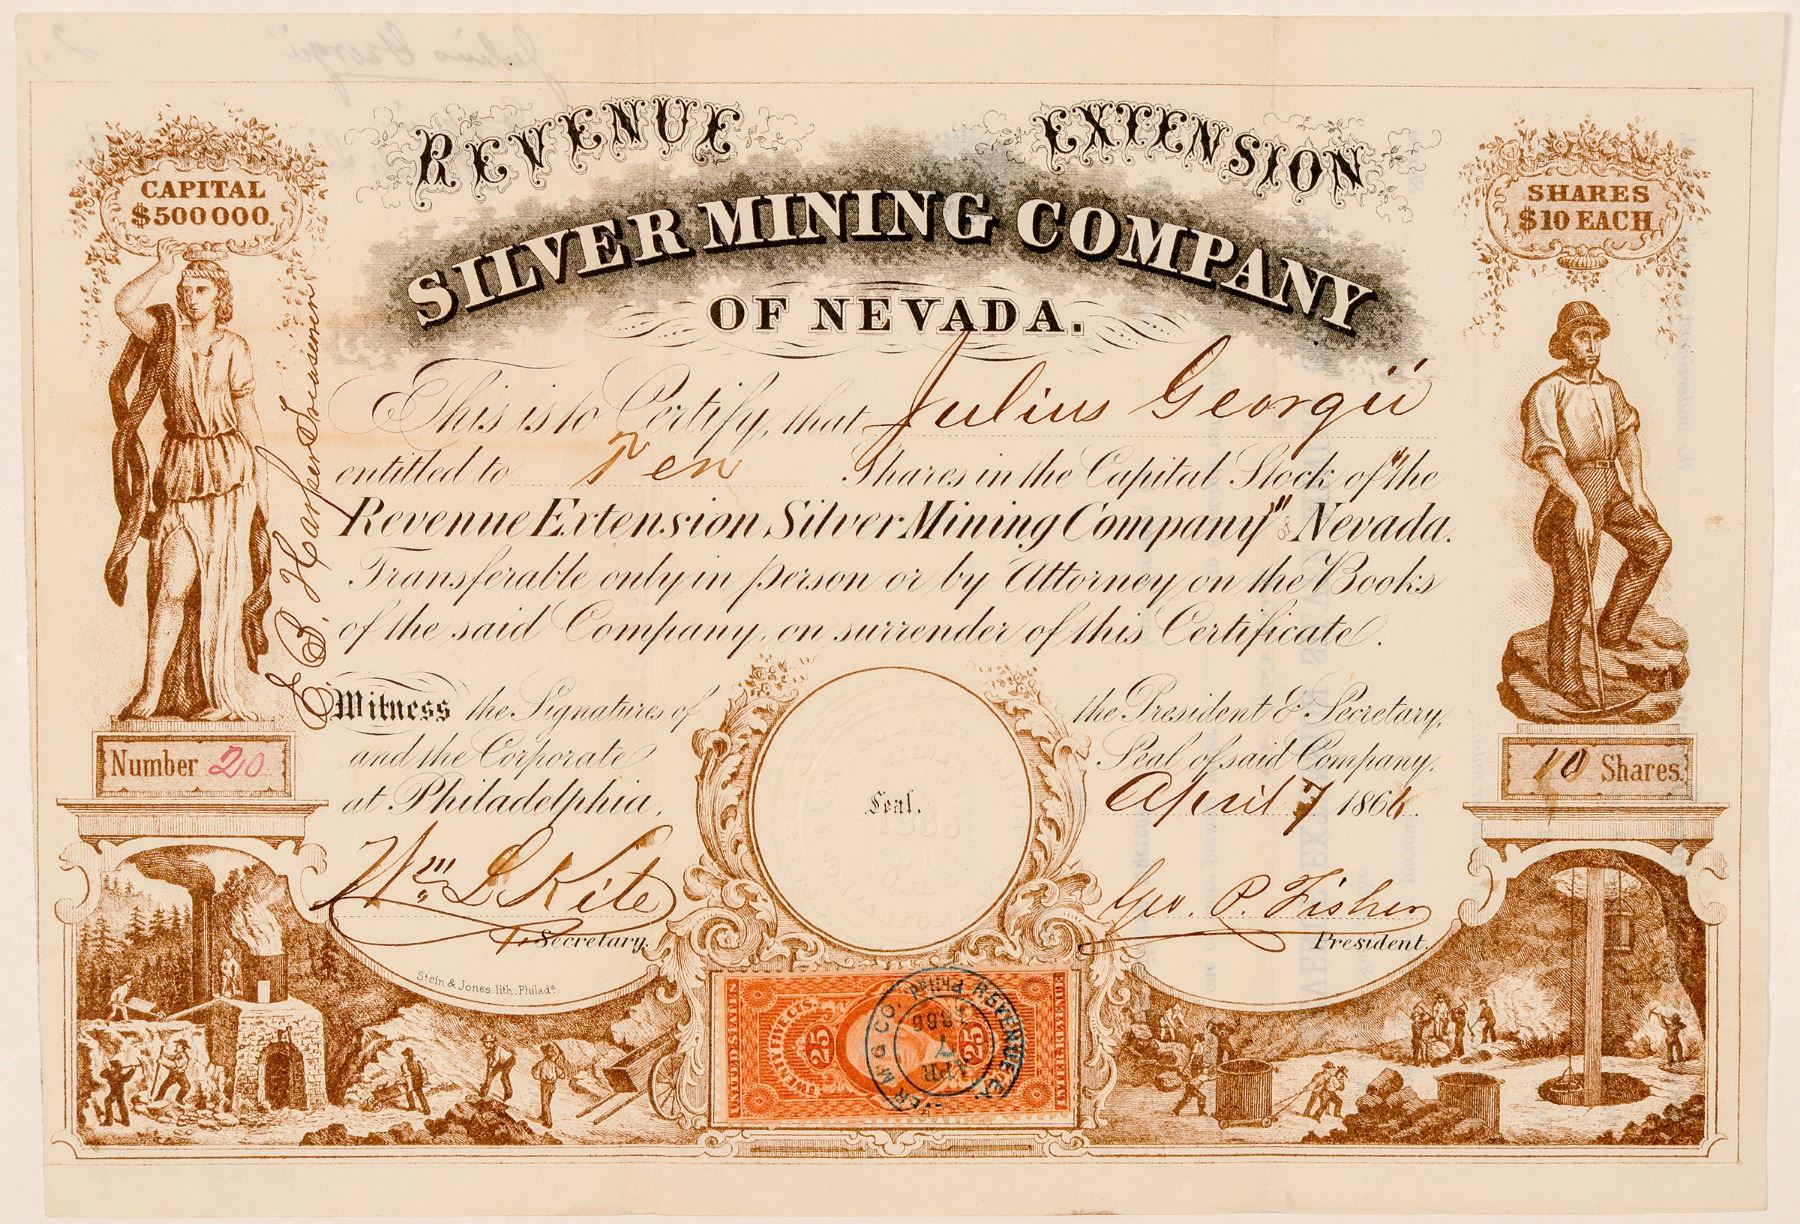 REVENUE EXTENSION
SILVER MINING COMPANY
OF NEVADA.
CAPITAL
$500000.
SHARES
$10 EACH
This is to Certify, that Julius Georgii
entitled to Ten Shares in the Capital Stock of "the
Revenue Extension Silver Mining Company" of Nevada.
Transferable only in person or by Attorney on the Books
of the said Company, on surrender of this Certificate.
E B. Harper Treasurer
Witness the Signatures of the President & Secretary,
and the Corporate Seal of said Company,
at Philadelphia, April 7 1866.
Number 20
10 Shares.
Seal.
1866
Wm. L Kite
Secretary.
Geo. P. Fisher
President.
Stein & Jones lith. Philada.
UNITED STATES
TWENTY FIVE CTS.
25
25
INTER. REVENUE
REVENUE EX.
M'G CO. Phila
APR
7
1866